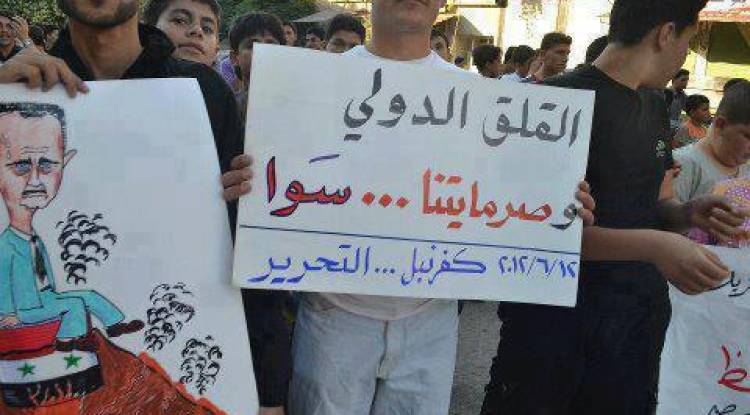 القلق الدولي
وصرمايتنا ... سَوا
٢٠١٢/٦/١٢ كفرنبل ... التحرير